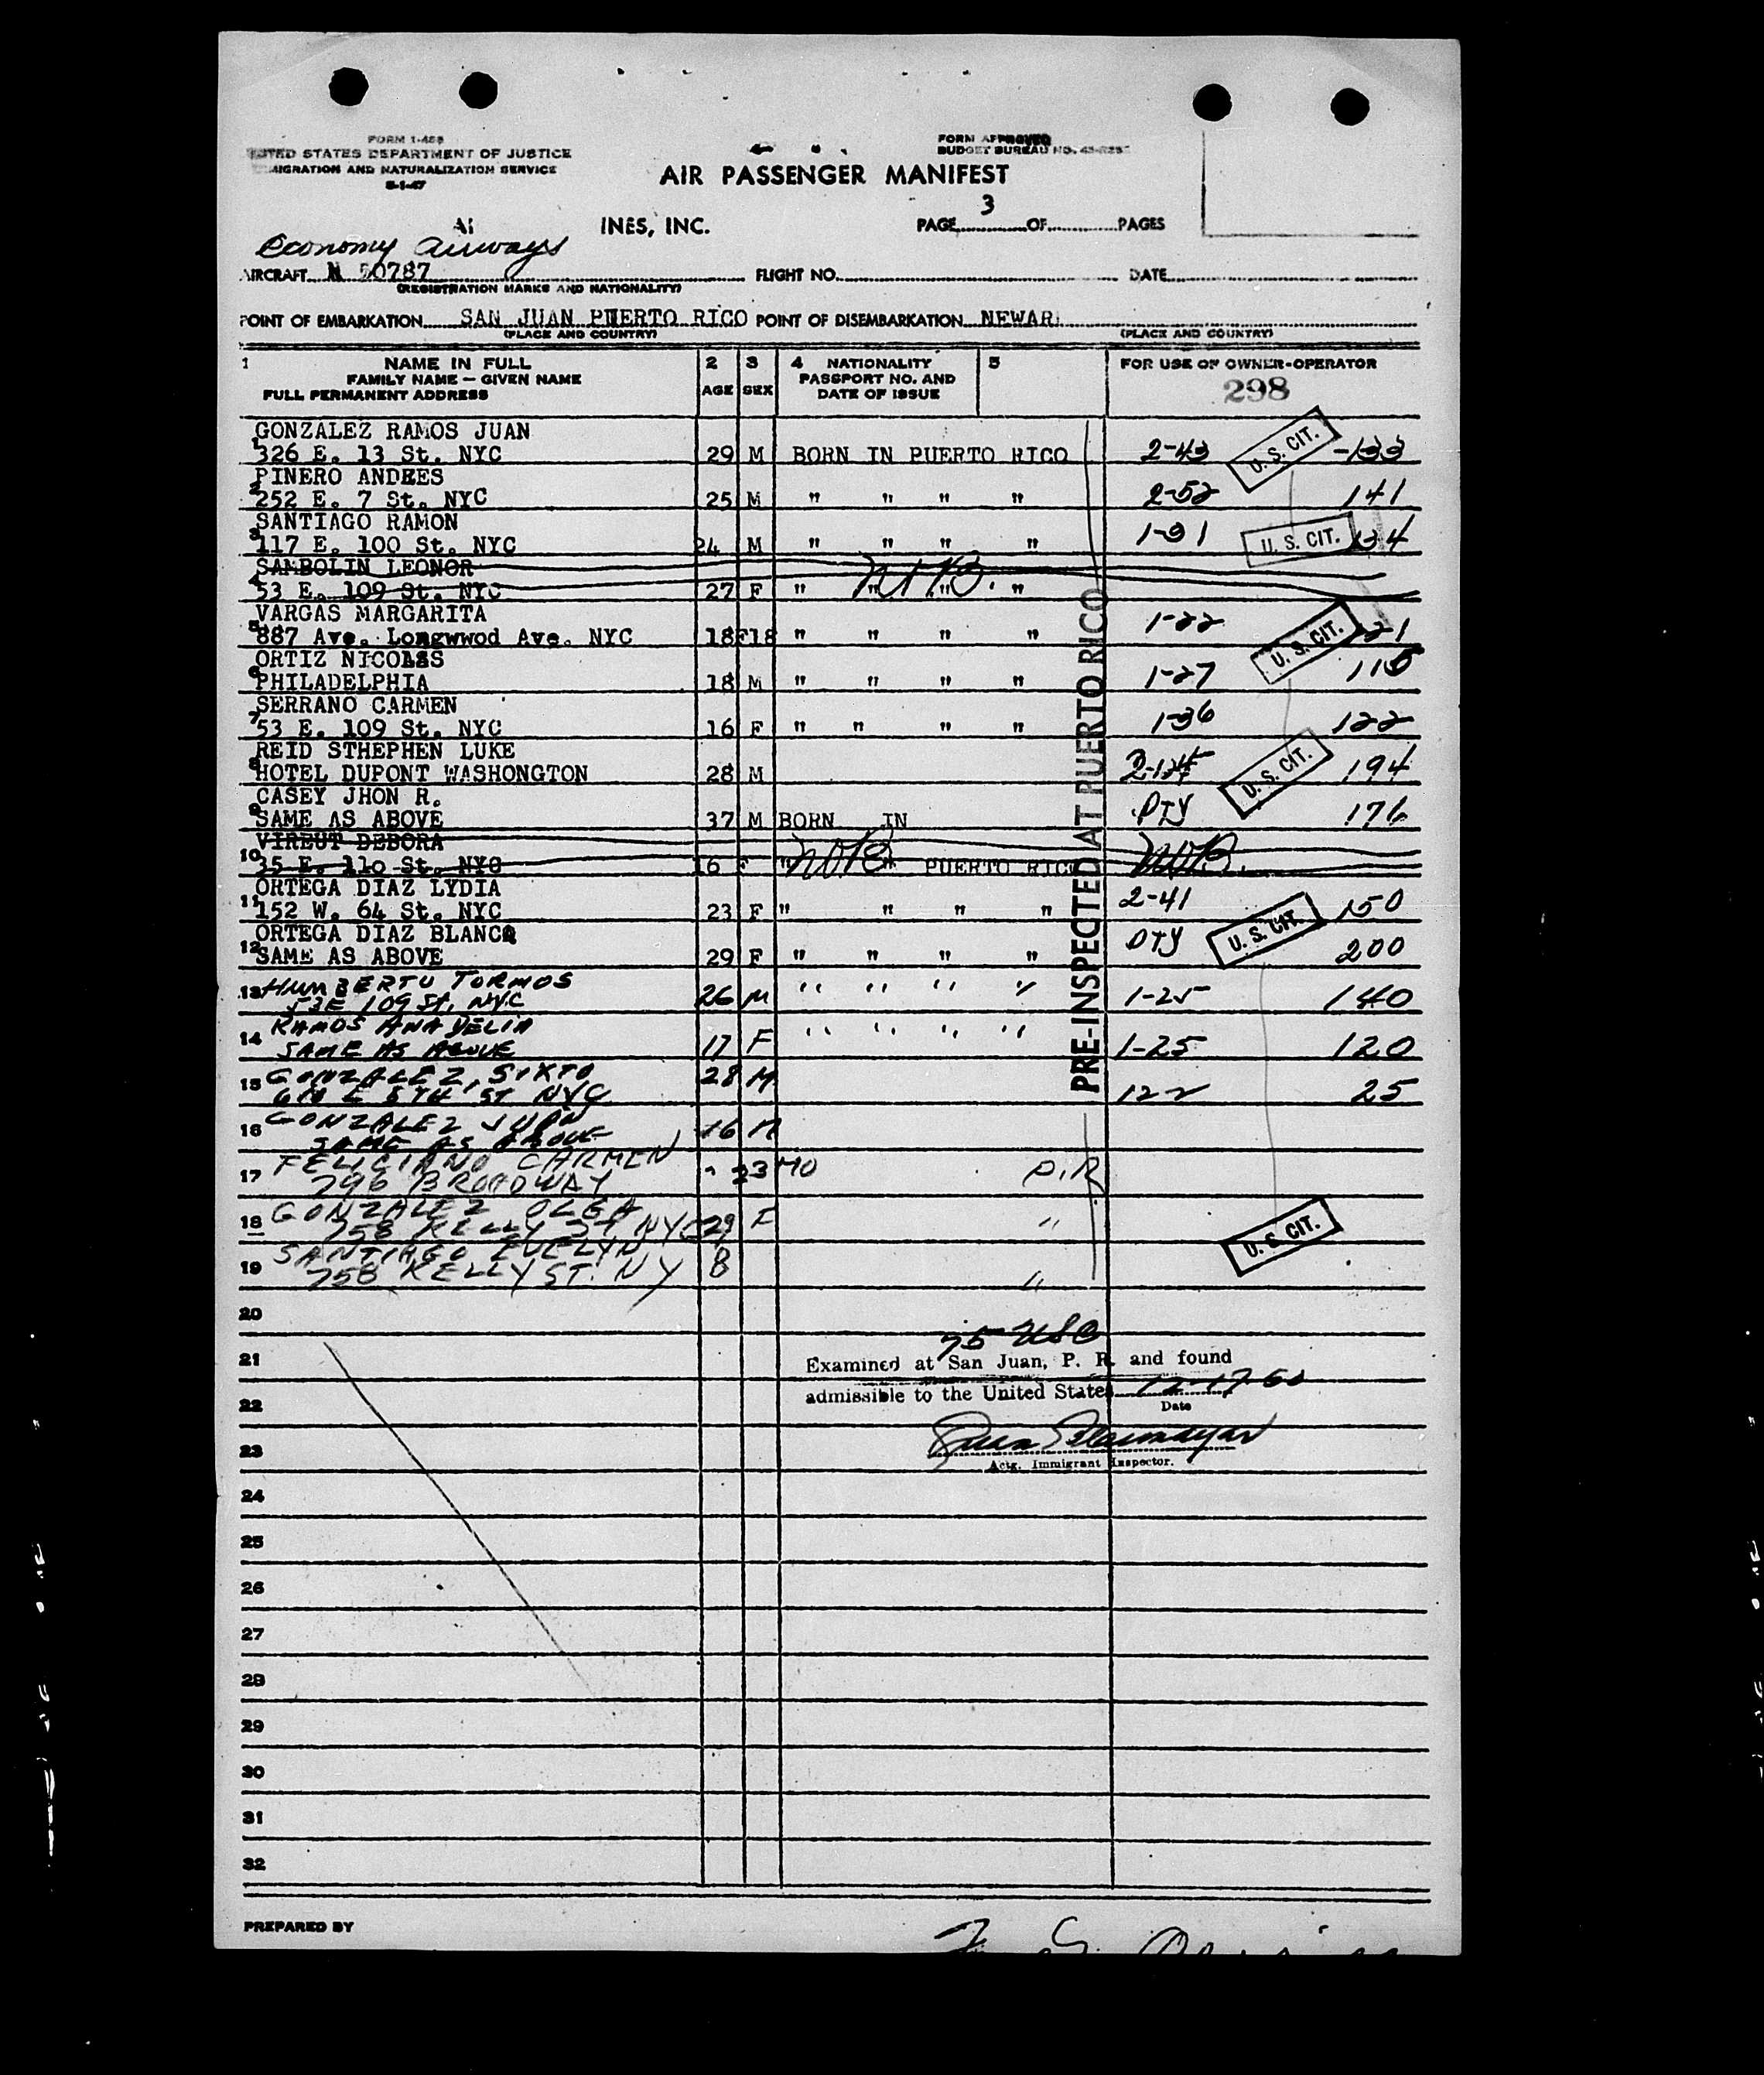 FORM I-466
UNITED STATES DEPARTMENT OF JUSTICE
IMMIGRATION AND NATURALIZATION SERVICE
FORM APPROVED
BUDGET BUREAU NO.
AIR PASSENGER MANIFEST
INES, INC.
PAGE 3 OF PAGES
Economy Airways
AIRCRAFT N 50787 FLIGHT NO. DATE
(REGISTRATION MARKS AND NATIONALITY)
POINT OF EMBARKATION SAN JUAN PUERTO RICO POINT OF DISEMBARKATION NEWAR
(PLACE AND COUNTRY) (PLACE AND COUNTRY)
1 NAME IN FULL 2 3 4 NATIONALITY 5 FOR USE OF OWNER-OPERATOR
FAMILY NAME — GIVEN NAME AGE SEX PASSPORT NO. AND
FULL PERMANENT ADDRESS DATE OF ISSUE 298
GONZALEZ RAMOS JUAN
1 326 E. 13 St. NYC 29 M BORN IN PUERTO RICO 2-43 U. S. CIT. -133
PINERO ANDRES
2 252 E. 7 St. NYC 25 M " " " " 2-52 141
SANTIAGO RAMON
3 117 E. 100 St. NYC 24 M " " " " 1-31 U. S. CIT. 134
SAMBOLIN LEONOR
4 53 E. 109 St. NYC 27 F " " " "
VARGAS MARGARITA
5 887 Ave. Longwwod Ave. NYC 18 F18 " " " " 1-22 U. S. CIT. 121
ORTIZ NICOLAS
6 PHILADELPHIA 18 M " " " " 1-27 115
SERRANO CARMEN
7 53 E. 109 St. NYC 16 F " " " " 1-36 122
REID STHEPHEN LUKE
8 HOTEL DUPONT WASHONGTON 28 M U. S. CIT. 194
CASEY JHON R.
9 SAME AS ABOVE 37 M BORN IN 176
VIREUT DEBORA
10 35 E. 110 St. NYC 16 F " " PUERTO RICO
ORTEGA DIAZ LYDIA
11 152 W. 64 St. NYC 23 F " " " " 2-41 150
ORTEGA DIAZ BLANCA
12 SAME AS ABOVE 29 F " " " " U. S. CIT. 200
HUMBERTO TORMOS
13 53E 109 St. NYC 26 M " " " " 1-25 140
RAMOS ANA DELIA
14 SAME AS ABOVE 17 F " " " " 1-25 120
GONZALEZ, SIXTO
15 E 5TH ST NYC 28 M 25
GONZALEZ JUAN
16 SAME AS ABOVE 16 M
FELICIANO CARMEN
17 796 BROADWAY 23 P.R
GONZALEZ OLGA
18 758 KELLY ST NYC 29 F "
SANTIAGO EVELYN U. S. CIT.
19 758 KELLY ST. NY 8 "
PRE-INSPECTED AT PUERTO RICO
20
75 USC
21 Examined at San Juan, P. R. and found
22 admissible to the United States 12-17-50
Date
23
Actg. Immigrant Inspector.
24
25
26
27
28
29
30
31
32
PREPARED BY